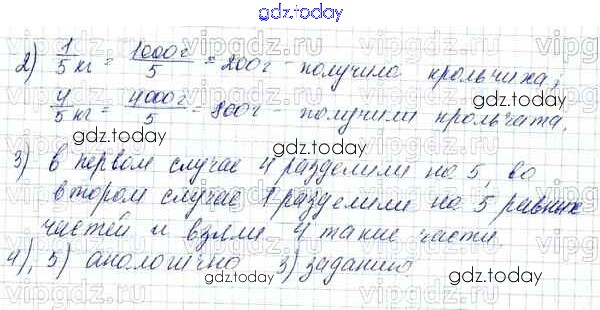 gdz.today
2) 1/5 кг = 1000г/5 = 200г - получила крольчиха;
gdz.today
4/5 кг = 4000г/5 = 800г - получили крольчата.
gdz.today gdz.today
3) в первом случае 4 разделили на 5, во
втором случае 1 разделили на 5 равных
gdz.today gdz.today
частей и взяли 4 такие части.
4), 5) аналогично 3) заданию
gdz.today gdz.today